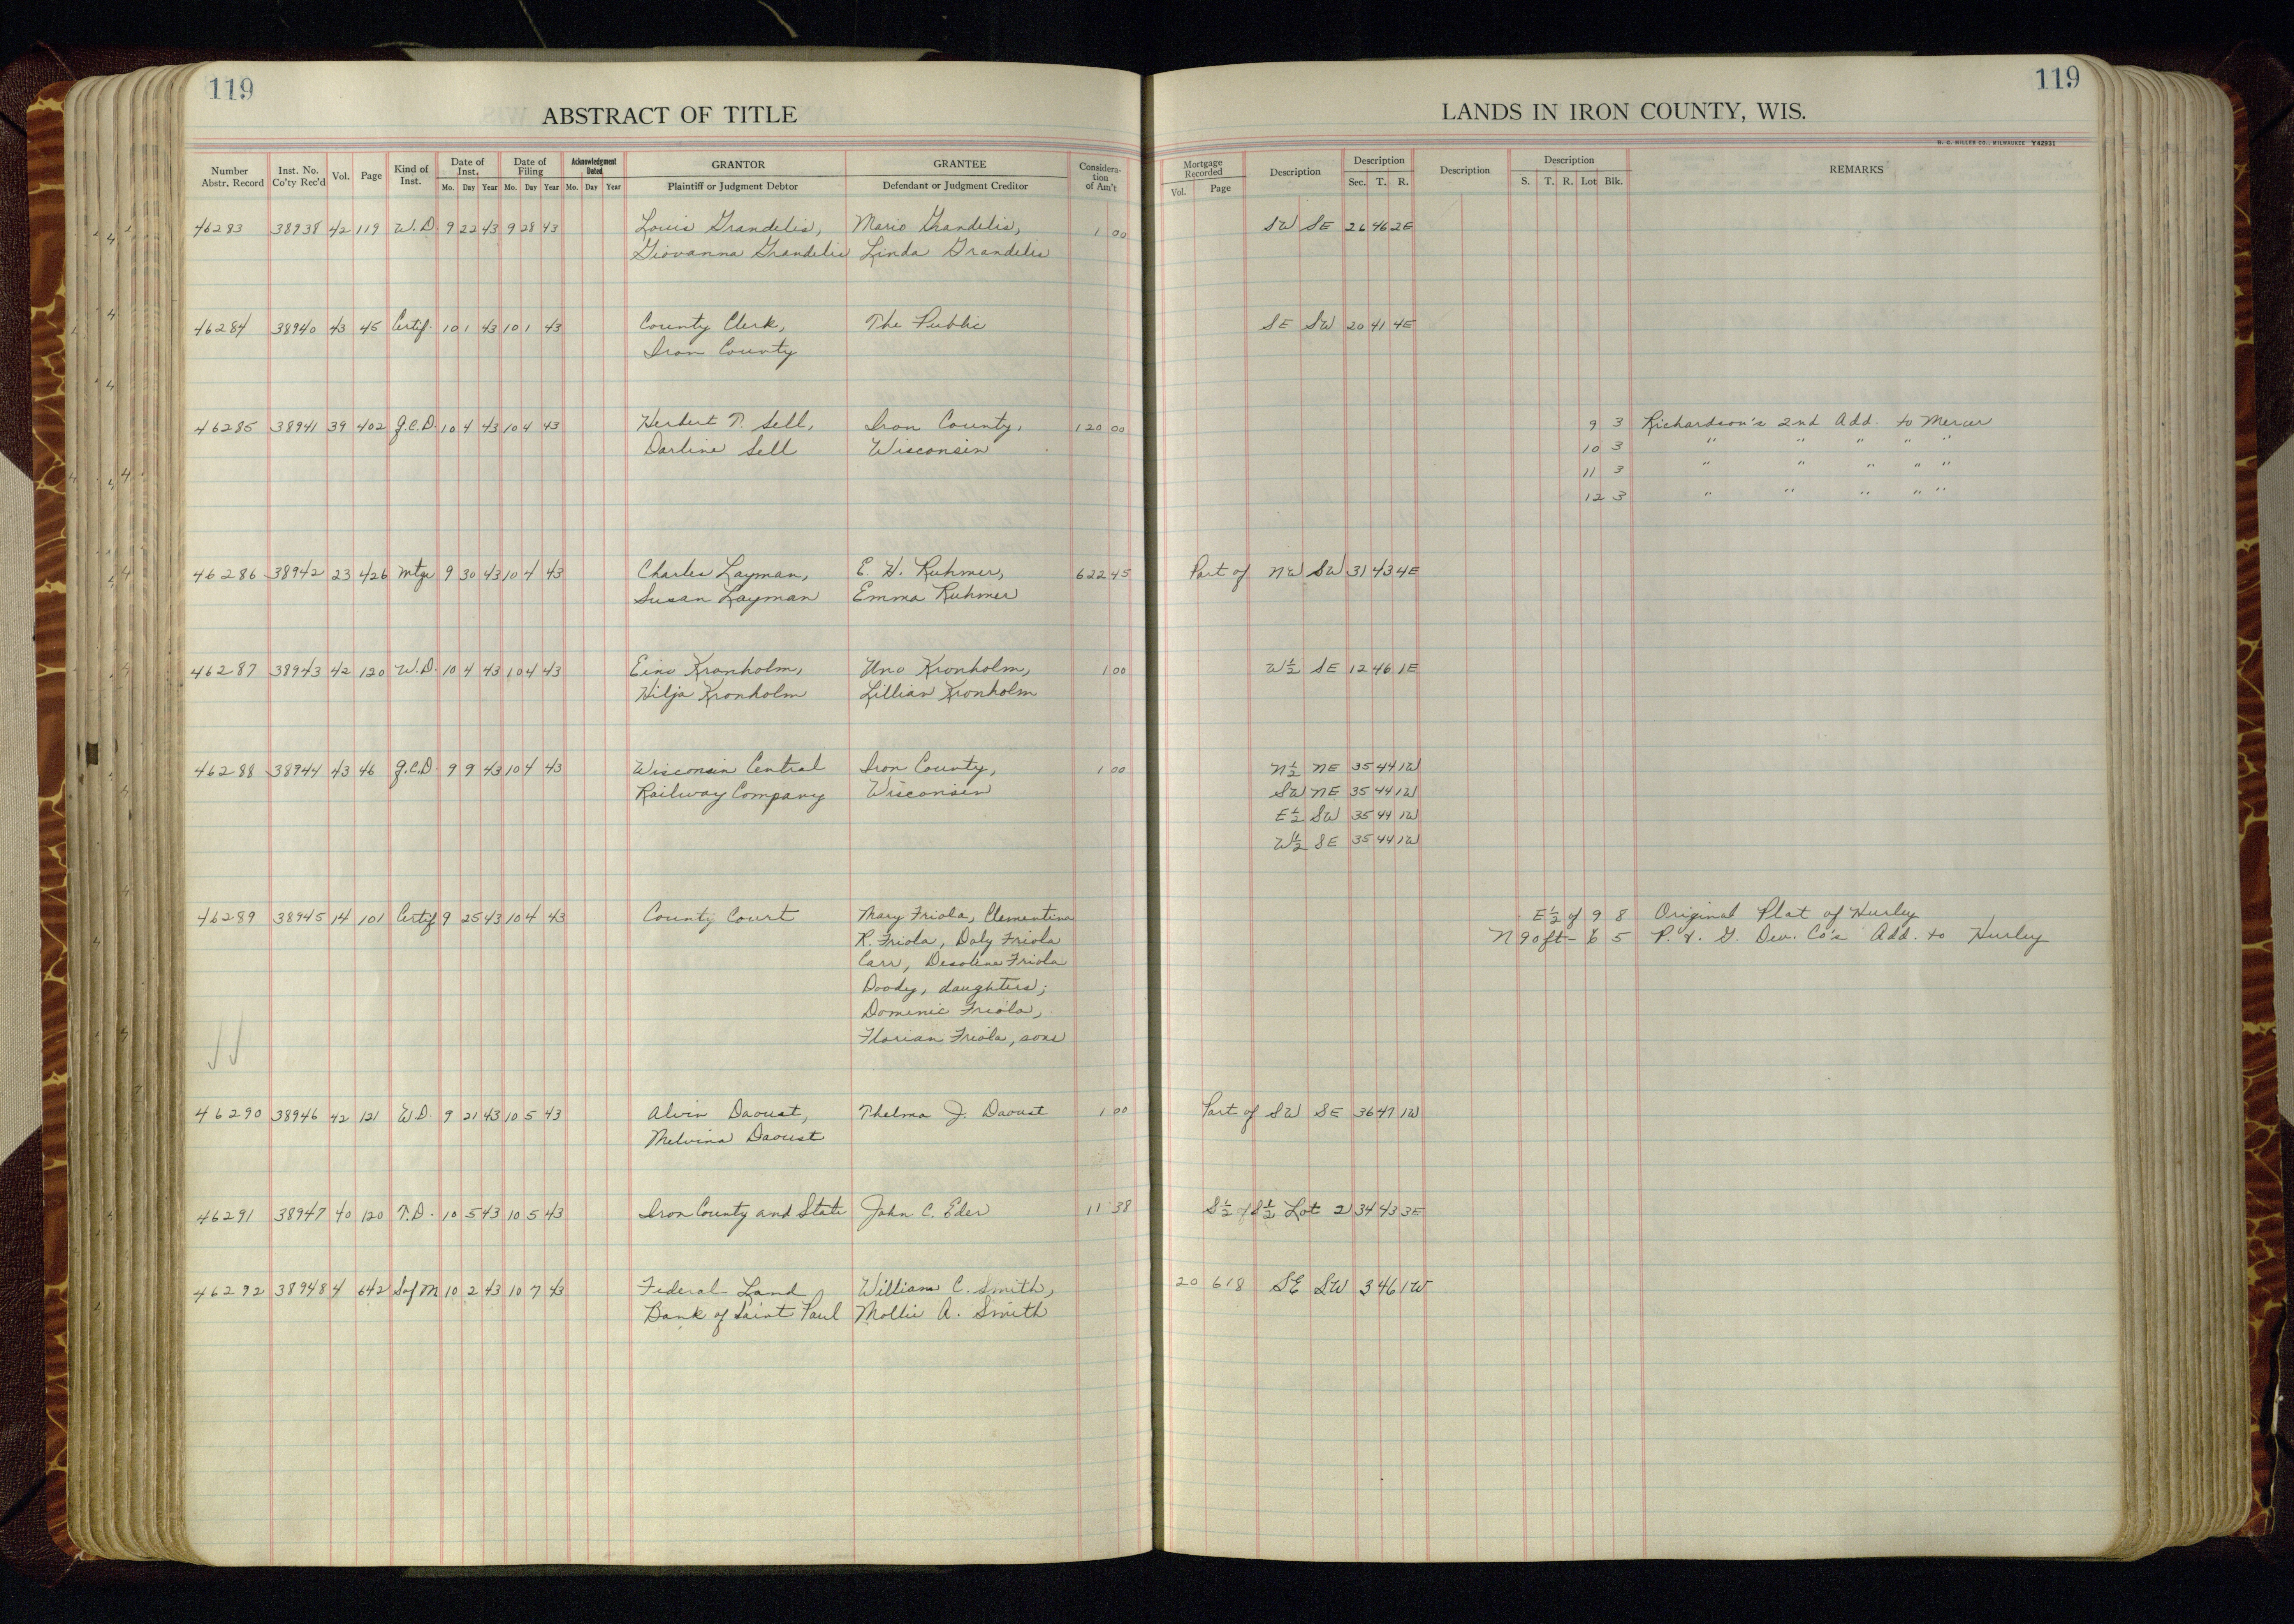 119
119
ABSTRACT OF TITLE
LANDS IN IRON COUNTY, WIS.
H. C. MILLER CO., MILWAUKEE Y42931
Number Abstr. Record Inst. No. Co'ty Rec'd Vol. Page Kind of Inst. Date of Inst. Mo. Day Year Date of Filing Mo. Day Year Acknowledgment Dated Mo. Day Year GRANTOR Plaintiff or Judgment Debtor GRANTEE Defendant or Judgment Creditor Considera-tion of Am't Mortgage Recorded Vol. Page Description Description Sec. T. R. Description Description S. T. R. Lot Blk. REMARKS
46283 38938 42 119 W.D. 9 22 43 9 28 43 Louis Grandelis, Mario Grandelis, 1 00 SW SE 26 46 2E
Giovanna Grandelis Linda Grandelis
46284 38940 43 45 Certif. 10 1 43 10 1 43 County Clerk, The Public SE SW 20 41 4E
Iron County
46285 38941 39 402 Q.C.D. 10 4 43 10 4 43 Herbert T. Sell, Iron County, 120 00 9 3 Richardson's 2nd Add. to Mercer
Darline Sell Wisconsin 10 3 " " " " "
11 3 " " " " "
12 3 " " " " "
46286 38942 23 426 Mtge 9 30 43 10 4 43 Charles Layman, E. H. Ruhmer, 622 45 Part of NW SW 31 43 4E
Susan Layman Emma Ruhmer
46287 38943 42 120 W.D. 10 4 43 10 4 43 Eino Kronholm, Uno Kronholm, 1 00 W½ SE 12 46 1E
Hilja Kronholm Lillian Kronholm
46288 38944 43 46 Q.C.D. 9 9 43 10 4 43 Wisconsin Central Iron County, 1 00 N½ NE 35 44 1W
Railway Company Wisconsin SW NE 35 44 1W
E½ SW 35 44 1W
W½ SE 35 44 1W
46289 38945 14 101 Certif 9 25 43 10 4 43 County Court Mary Friola, Clementina E½ of 9 8 Original Plat of Hurley
R. Friola, Daly Friola N 90 ft - 6 5 P. & G. Dev. Co's Add. to Hurley
Carr, Desoline Friola
Doody, daughters;
Dominic Friola,
Florian Friola, sons
46290 38946 42 121 W.D. 9 21 43 10 5 43 Alvin Daoust, Thelma J. Daoust 1 00 Part of SW SE 36 47 1W
Melvina Daoust
46291 38947 40 120 T.D. 10 5 43 10 5 43 Iron County and State John C. Eder 11 38 S½ of S½ Lot 2 34 43 3E
46292 38948 4 642 S of M 10 2 43 10 7 43 Federal Land William C. Smith, 20 618 SE SW 3 46 1W
Bank of Saint Paul Mollie A. Smith